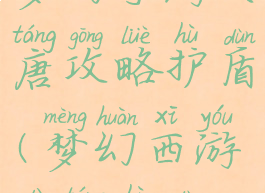 táng gōng lüè hù dùn
唐攻略护盾
mèng huàn xī yóu
(梦幻西游